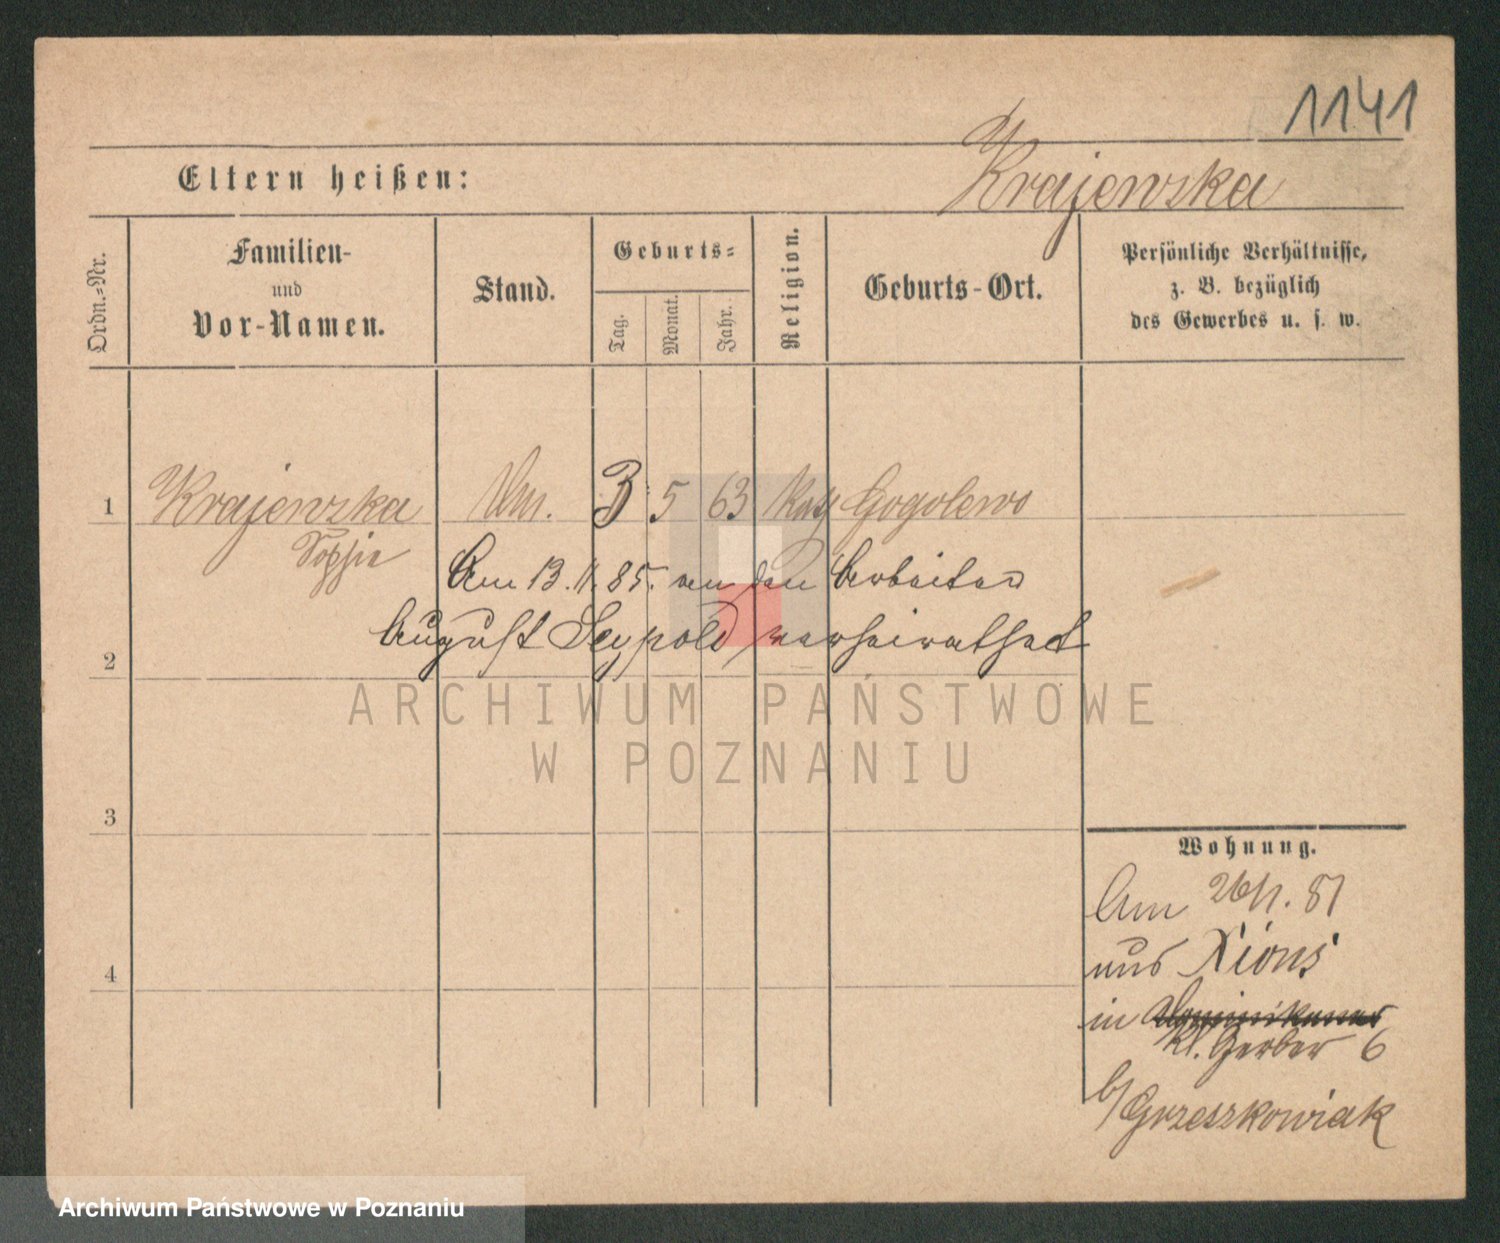 1141
Eltern heißen:
Krajewska
Ordn.-Nr.
Familien-
und
Vor-Namen.
Stand.
Geburts-
Tag.
Monat.
Jahr.
Religion.
Geburts-Ort.
Persönliche Verhältnisse,
z. B. bezüglich
des Gewerbes u. s. w.
1 Krajewska 3 5 63 Gogolewo
Sophie
Am 13.11.85. an den Arbeiter
August Seypold verheirathet
2
ARCHIWUM PAŃSTWOWE
W POZNANIU
3
Wohnung.
Am 26/1. 81
aus Xions
4
in Dominikaner
Kl. Gerber 6
b/ Grzeszkowiak
Archiwum Państwowe w Poznaniu